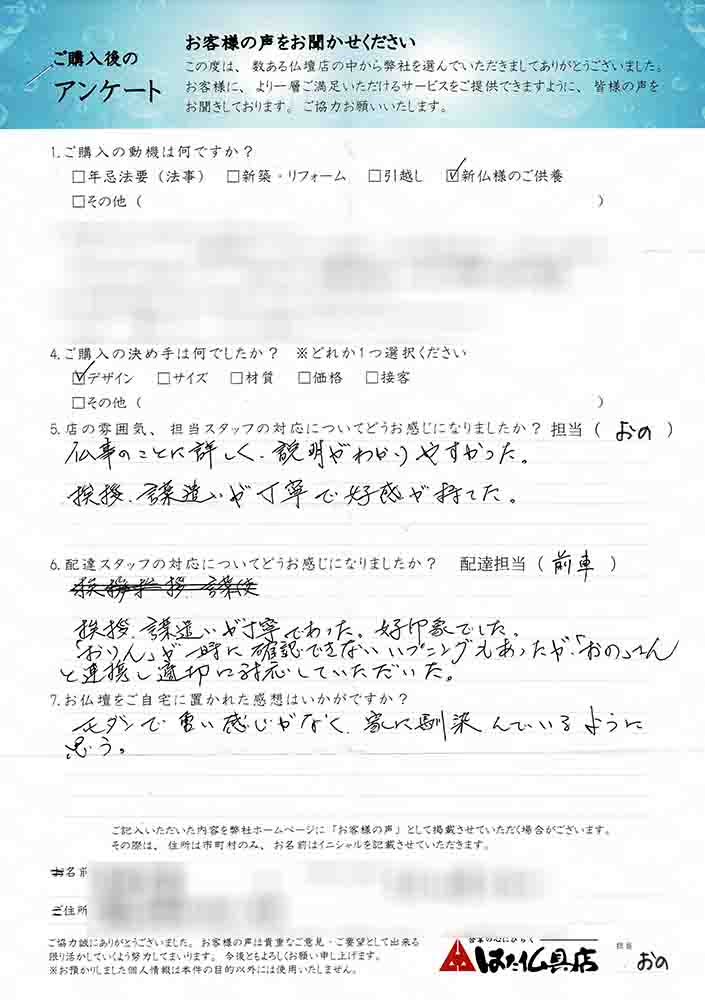 ご購入後の
アンケート
お客様の声をお聞かせください
この度は、数ある仏壇店の中から弊社を選んでいただきましてありがとうございました。
お客様に、より一層ご満足いただけるサービスをご提供できますように、皆様の声を
お聞きしております。ご協力お願いいたします。
1.ご購入の動機は何ですか?
□年忌法要(法事) □新築・リフォーム □引越し ☑新仏様のご供養
□その他( )
4.ご購入の決め手は何でしたか? ※どれか1つ選択ください
☑デザイン □サイズ □材質 □価格 □接客
□その他( )
5.店の雰囲気、担当スタッフの対応についてどうお感じになりましたか?担当(おの)
仏事のことに詳しく、説明がわかりやすかった。
挨拶、言葉遣いが丁寧で好感が持てた。
6.配達スタッフの対応についてどうお感じになりましたか? 配達担当(前車)
挨拶、言葉遣いが丁寧であった。好印象でした。
「おりん」が一時に確認できないハプニングもあったが、「おの」さん
と連携し適切に対応していただいた。
7.お仏壇をご自宅に置かれた感想はいかがですか?
モダンで重い感じがなく、家に馴染んでいるように
思う。
ご記入いただいた内容を弊社ホームページに「お客様の声」として掲載させていただく場合がございます。
その際は、住所は市町村のみ、お名前はイニシャルを記載させていただきます。
お名前
ご住所
ご協力誠にありがとうございました。お客様の声は貴重なご意見・ご要望として出来る
限り活かしていくよう努力してまいります。今後ともよろしくお願い申し上げます。
※お預かりしました個人情報は本件の目的以外には使用いたしません。
はせ仏具店
担当
おの